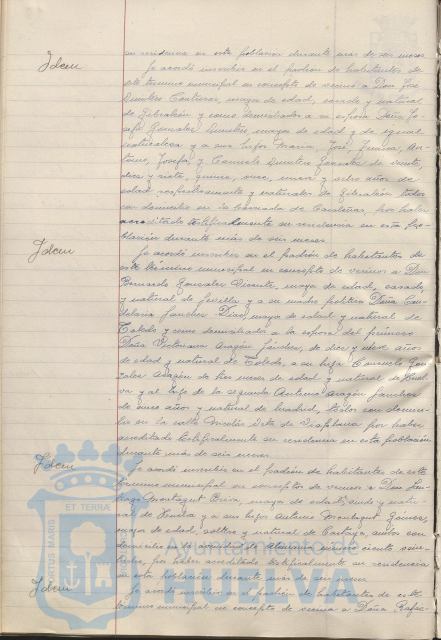 su residencia en esta poblacion durante mas de seis meses.
Idem
Se acordó inscribir en el padrón de habitantes de
este término municipal en concepto de vecino a Don José
Dumbre Contreras, mayor de edad, casado y natural
de Gibraleón y como domiciliados a su esposa Doña Jo-
sefa Gonzalez, mayor de edad y de igual
naturaleza y a sus hijos Maria, José, Juana, An-
tonio, Josefa y Consuelo Dumbre Gonzalez de veinte,
diez y siete, quince, once, nueve y ocho años de
edad respectivamente y naturales de Gibraleón todos
con domicilio en la de Cardeñas, por haber
acreditado testificalmente su residencia en esta po-
blación durante más de seis meses.
Idem
Se acordó inscribir en el padrón de habitantes de
este término municipal en concepto de vecinos a Don
Bernardo Gonzalez Vicente, mayor de edad, casado
y natural de Sevilla y a su madre politica Doña Can-
delaria Sanchez Diaz, mayor de edad y natural de
Toledo y como domiciliados a la esposa del primero
Doña Victoriana Aragón Sánchez, de diez y nueve años
de edad y natural de Toledo, a su hija Consuelo Gon-
zalez Aragón de tres meses de edad y natural de Huel-
va y al hijo de la segunda Antonio Aragón Sanchez
de once años y natural de Madrid, todos con domici-
lio en la calle Nicolás por haber
acreditado testificalmente su residencia en esta población
durante más de seis meses.
Idem
Se acordó inscribir en el padrón de habitantes de este
término municipal en concepto de vecinos a Don San-
tiago Montagut, mayor de edad, viudo y natu-
ral de Huelva y a su hijo Antonio Montagut
mayor de edad, soltero y natural de Cartaya, ambos con
domicilio en
por haber acreditado testificalmente su residencia
en esta población durante más de seis meses.
Idem
Se acordó inscribir en el padrón de habitantes de este
término municipal en concepto de vecina a Doña Rafae-
PORTUS MARIS
ET TERRÆ
Ayuntamiento de
HUELVA